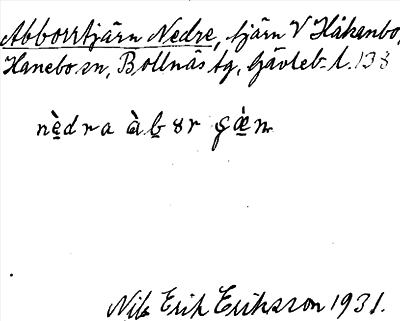 Abborrtjärn Nedre, tjärn V Håkanbo,
Hanebo sn, Bollnäs tg, Gävleb. l. 138
nè̱dra àḇȣr
Nils Erik Eriksson 1931.